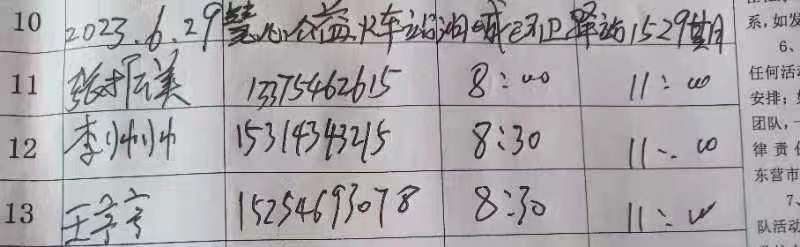 10 2023.6.29慧心公益火车站润城环卫驿站1529期
11 张振美 13375462615 8:00 11:00
12 李帅帅 15314343215 8:30 11:00
13 王 15254693078 8:30 11:00
系,如发
6、
任何活动
安排;
团队,
律责任
东营市
7、
队活动